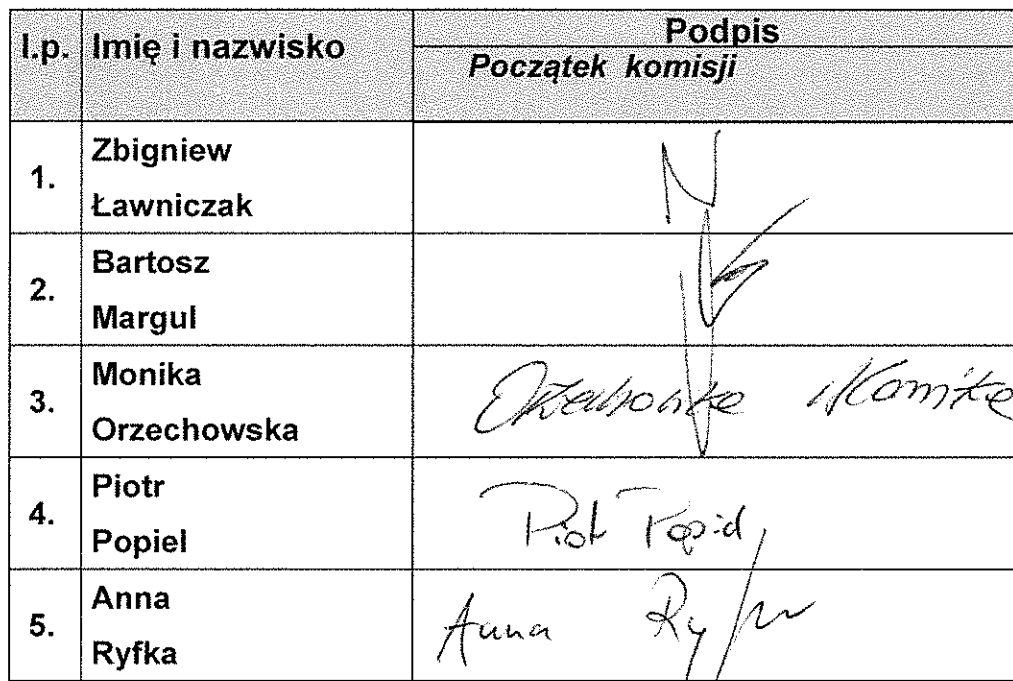 l.p. Imię i nazwisko Podpis
Początek komisji
1. Zbigniew
Ławniczak
2. Bartosz
Margul
3. Monika
Orzechowska
Orzechowska Monika
4. Piotr
Popiel
Piotr Popiel
5. Anna
Ryfka
Anna Ryfka